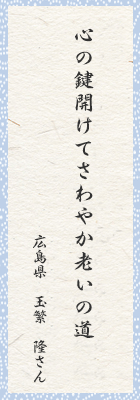 心の鍵開けてさわやか老いの道
広島県 玉繁 隆さん